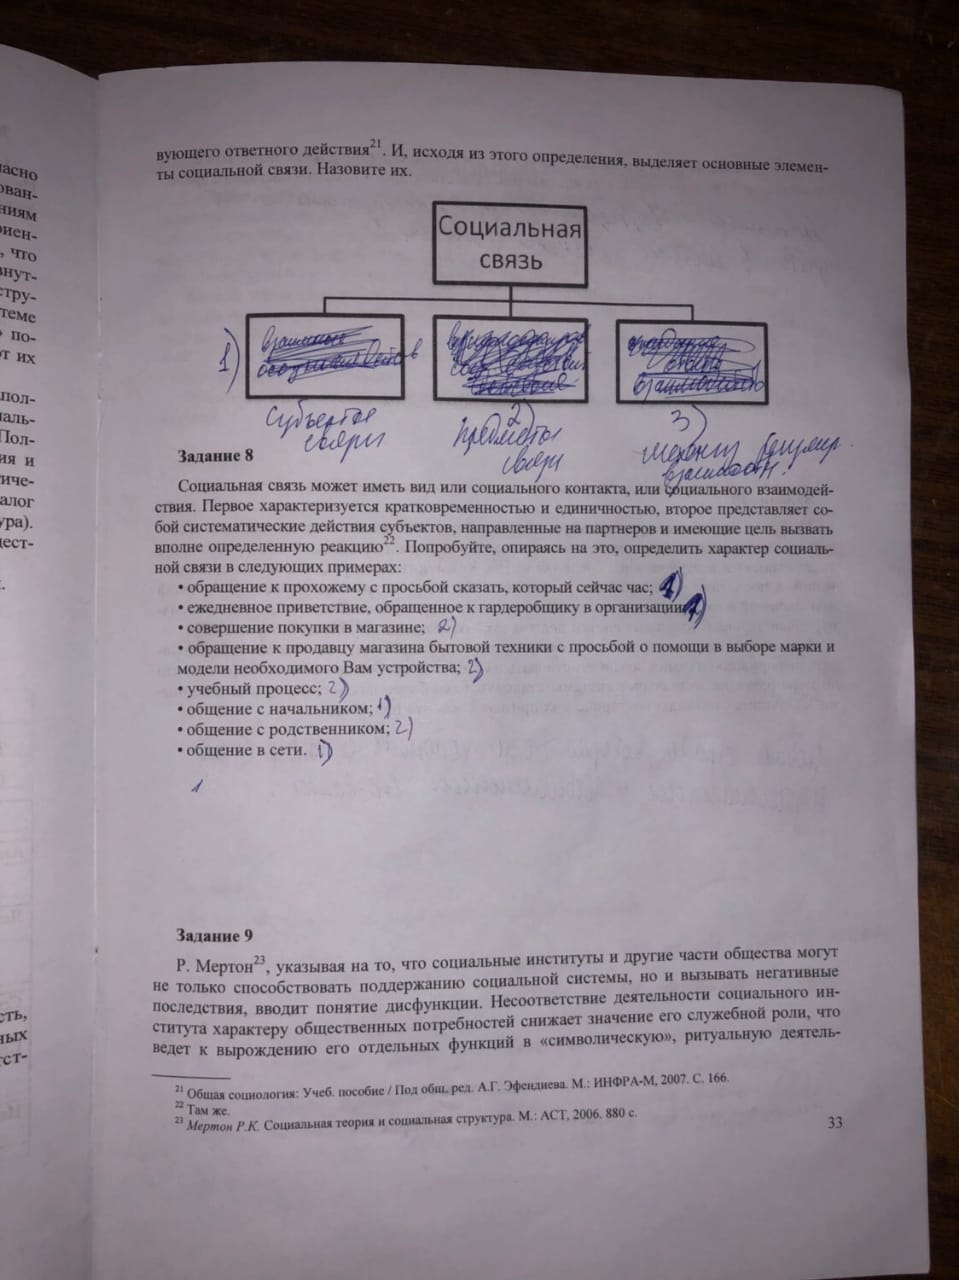 асно
ован-
ниям
риен-
, что
внут-
стру-
теме
» по-
от их
пол-
аль-
Пол-
ия и
тиче-
алог
ура).
цест-
сть,
ных
тст-
вующего ответного действия21. И, исходя из этого определения, выделяет основные элемен-
ты социальной связи. Назовите их.
Социальная
связь
1)
субъекты
связи
2)
предметы
связи
3)
Задание 8
Социальная связь может иметь вид или социального контакта, или социального взаимодей-
ствия. Первое характеризуется кратковременностью и единичностью, второе представляет со-
бой систематические действия субъектов, направленные на партнеров и имеющие цель вызвать
вполне определенную реакцию22. Попробуйте, опираясь на это, определить характер социаль-
ной связи в следующих примерах:
• обращение к прохожему с просьбой сказать, который сейчас час; 1)
• ежедневное приветствие, обращенное к гардеробщику в организации;
• совершение покупки в магазине; 2)
• обращение к продавцу магазина бытовой техники с просьбой о помощи в выборе марки и
модели необходимого Вам устройства; 2)
• учебный процесс; 2)
• общение с начальником; 1)
• общение с родственником; 2)
• общение в сети. 1)
Задание 9
Р. Мертон23, указывая на то, что социальные институты и другие части общества могут
не только способствовать поддержанию социальной системы, но и вызывать негативные
последствия, вводит понятие дисфункции. Несоответствие деятельности социального ин-
ститута характеру общественных потребностей снижает значение его служебной роли, что
ведет к вырождению его отдельных функций в «символическую», ритуальную деятель-
21 Общая социология: Учеб. пособие / Под общ. ред. А.Г. Эфендиева. М.: ИНФРА-М, 2007. С. 166.
22 Там же.
23 Мертон Р.К. Социальная теория и социальная структура. М.: АСТ, 2006. 880 с.
33